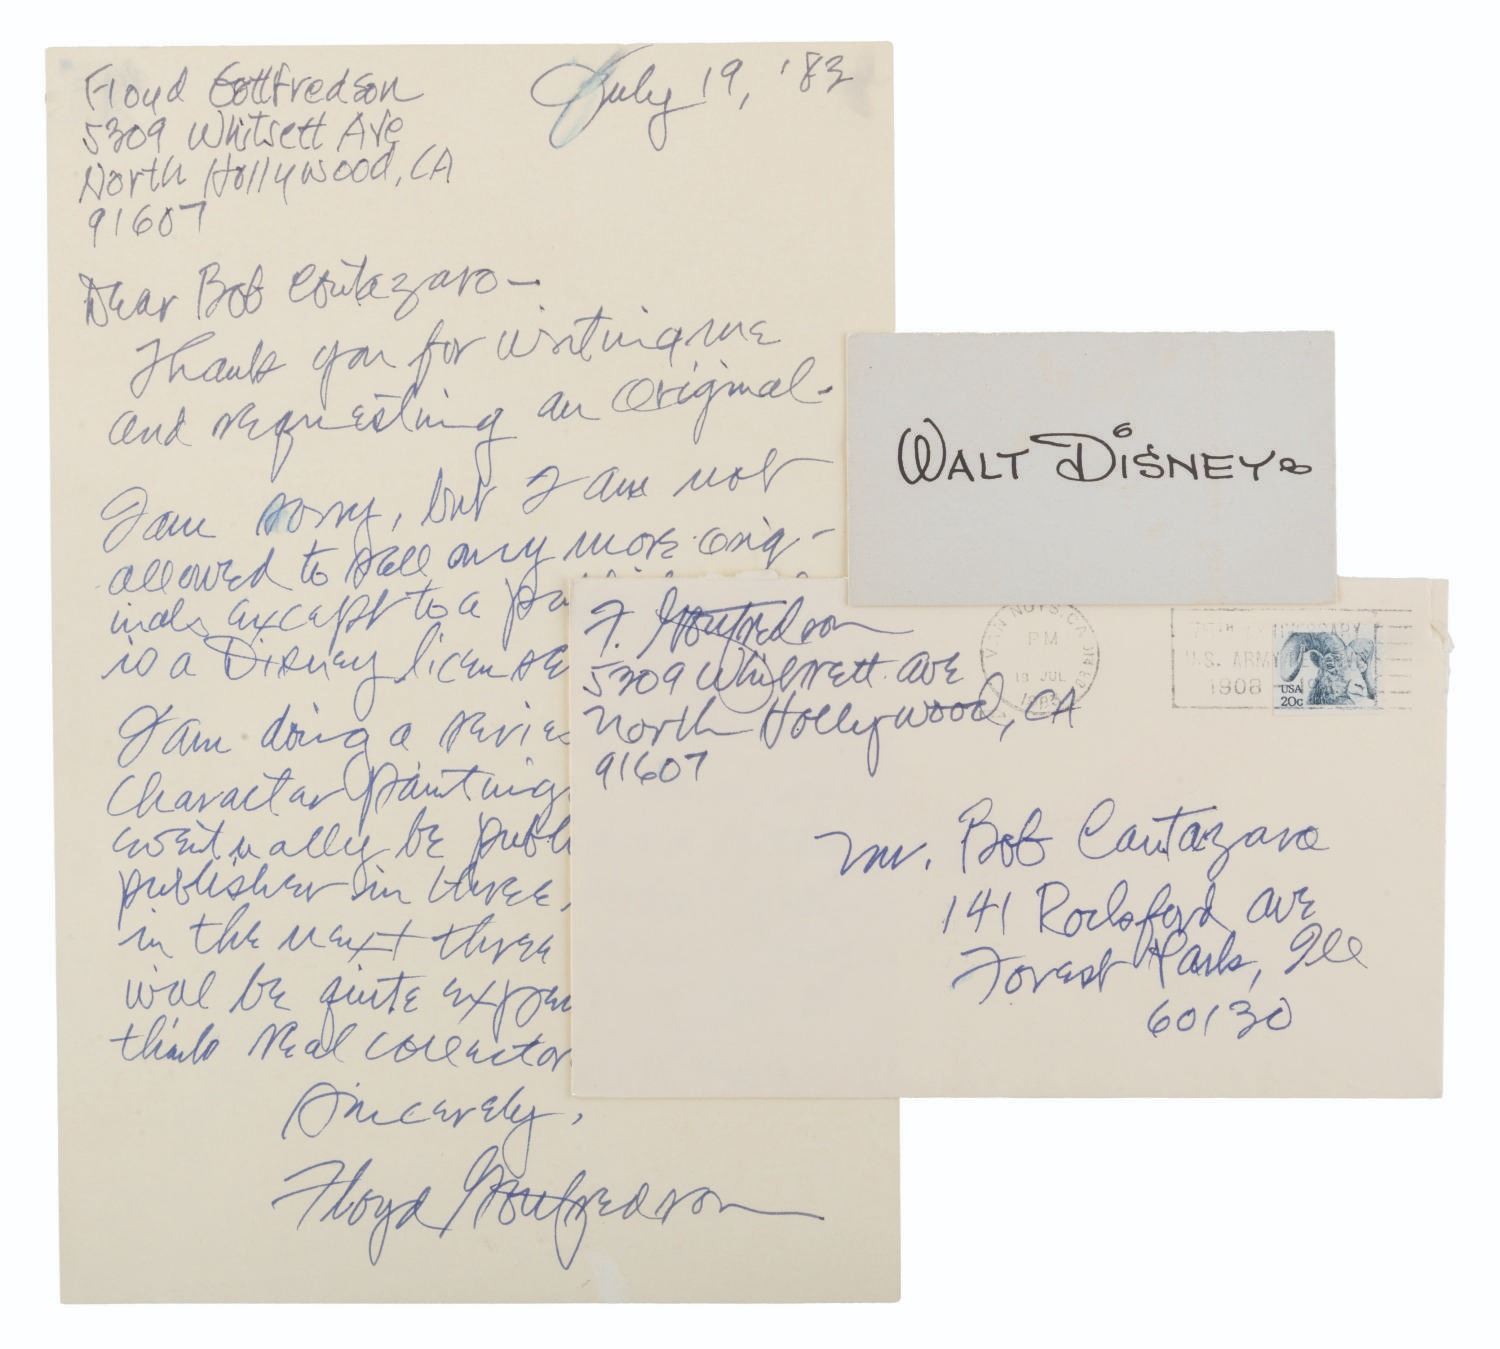 Floyd Gottfredson
5309 Whitsett Ave
North Hollywood, CA
91607
July 19, '83
Dear Bob Cantazaro –
Thank you for writing me
and requesting an original.
I am sorry, but I am not
allowed to sell any more orig-
inals except to a
is a Disney license
I am doing a series
character painting
eventually be publ
publisher in three,
in the next three
will be quite expen
think real collector
Sincerely,
Floyd Gottfredson
WALT DISNEY
F. Gottfredson
5309 Whitsett Ave
North Hollywood, CA
91607
VAN NUYS, CA
PM
19 JUL
1983
75TH ANNIVERSARY
U.S. ARMY RESERVE
1908
USA
20c
Mr. Bob Cantazaro
141 Rockford Ave
Forest Park, Ill
60130